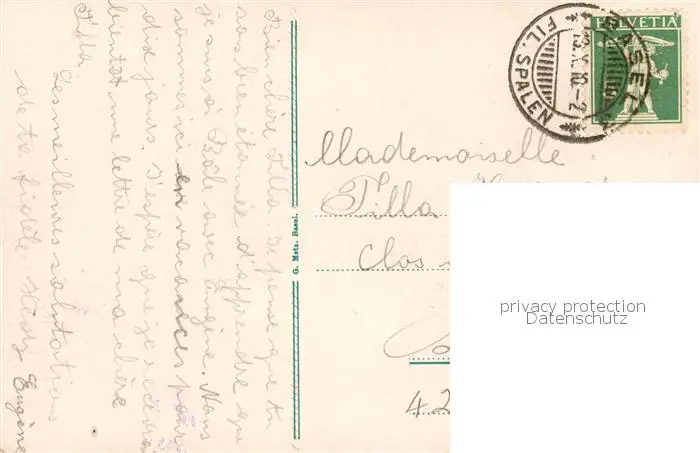 Bien chère Tilla. Je pense que tu
sas bien étonnée d'apprendre que
je suis à Bâle avec Eugène. Nous
sommes ici en vacances pour
dix jours. J'espère que je recevrai
bientôt une lettre de ma chère
Tilla
Les meilleures salutations
de ta fidèle Hedy
Eugène
G. Metz, Basel.
BASEL
FIL. SPALEN
HELVETIA
Mademoiselle
Tilla
Clos
42
privacy protection
Datenschutz